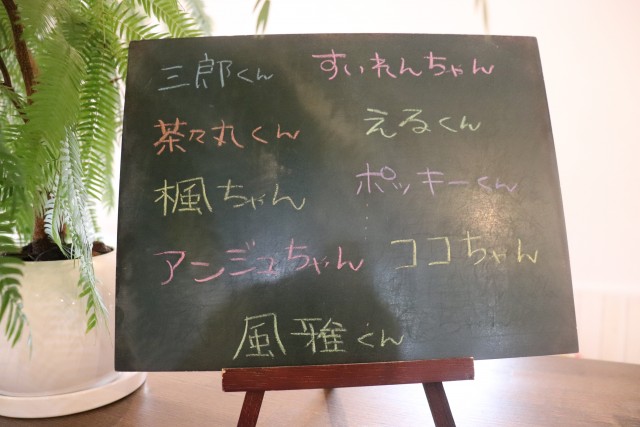 三郎くん すいれんちゃん
茶々丸くん えるくん
楓ちゃん ポッキーくん
アンジュちゃん ココちゃん
風雅くん